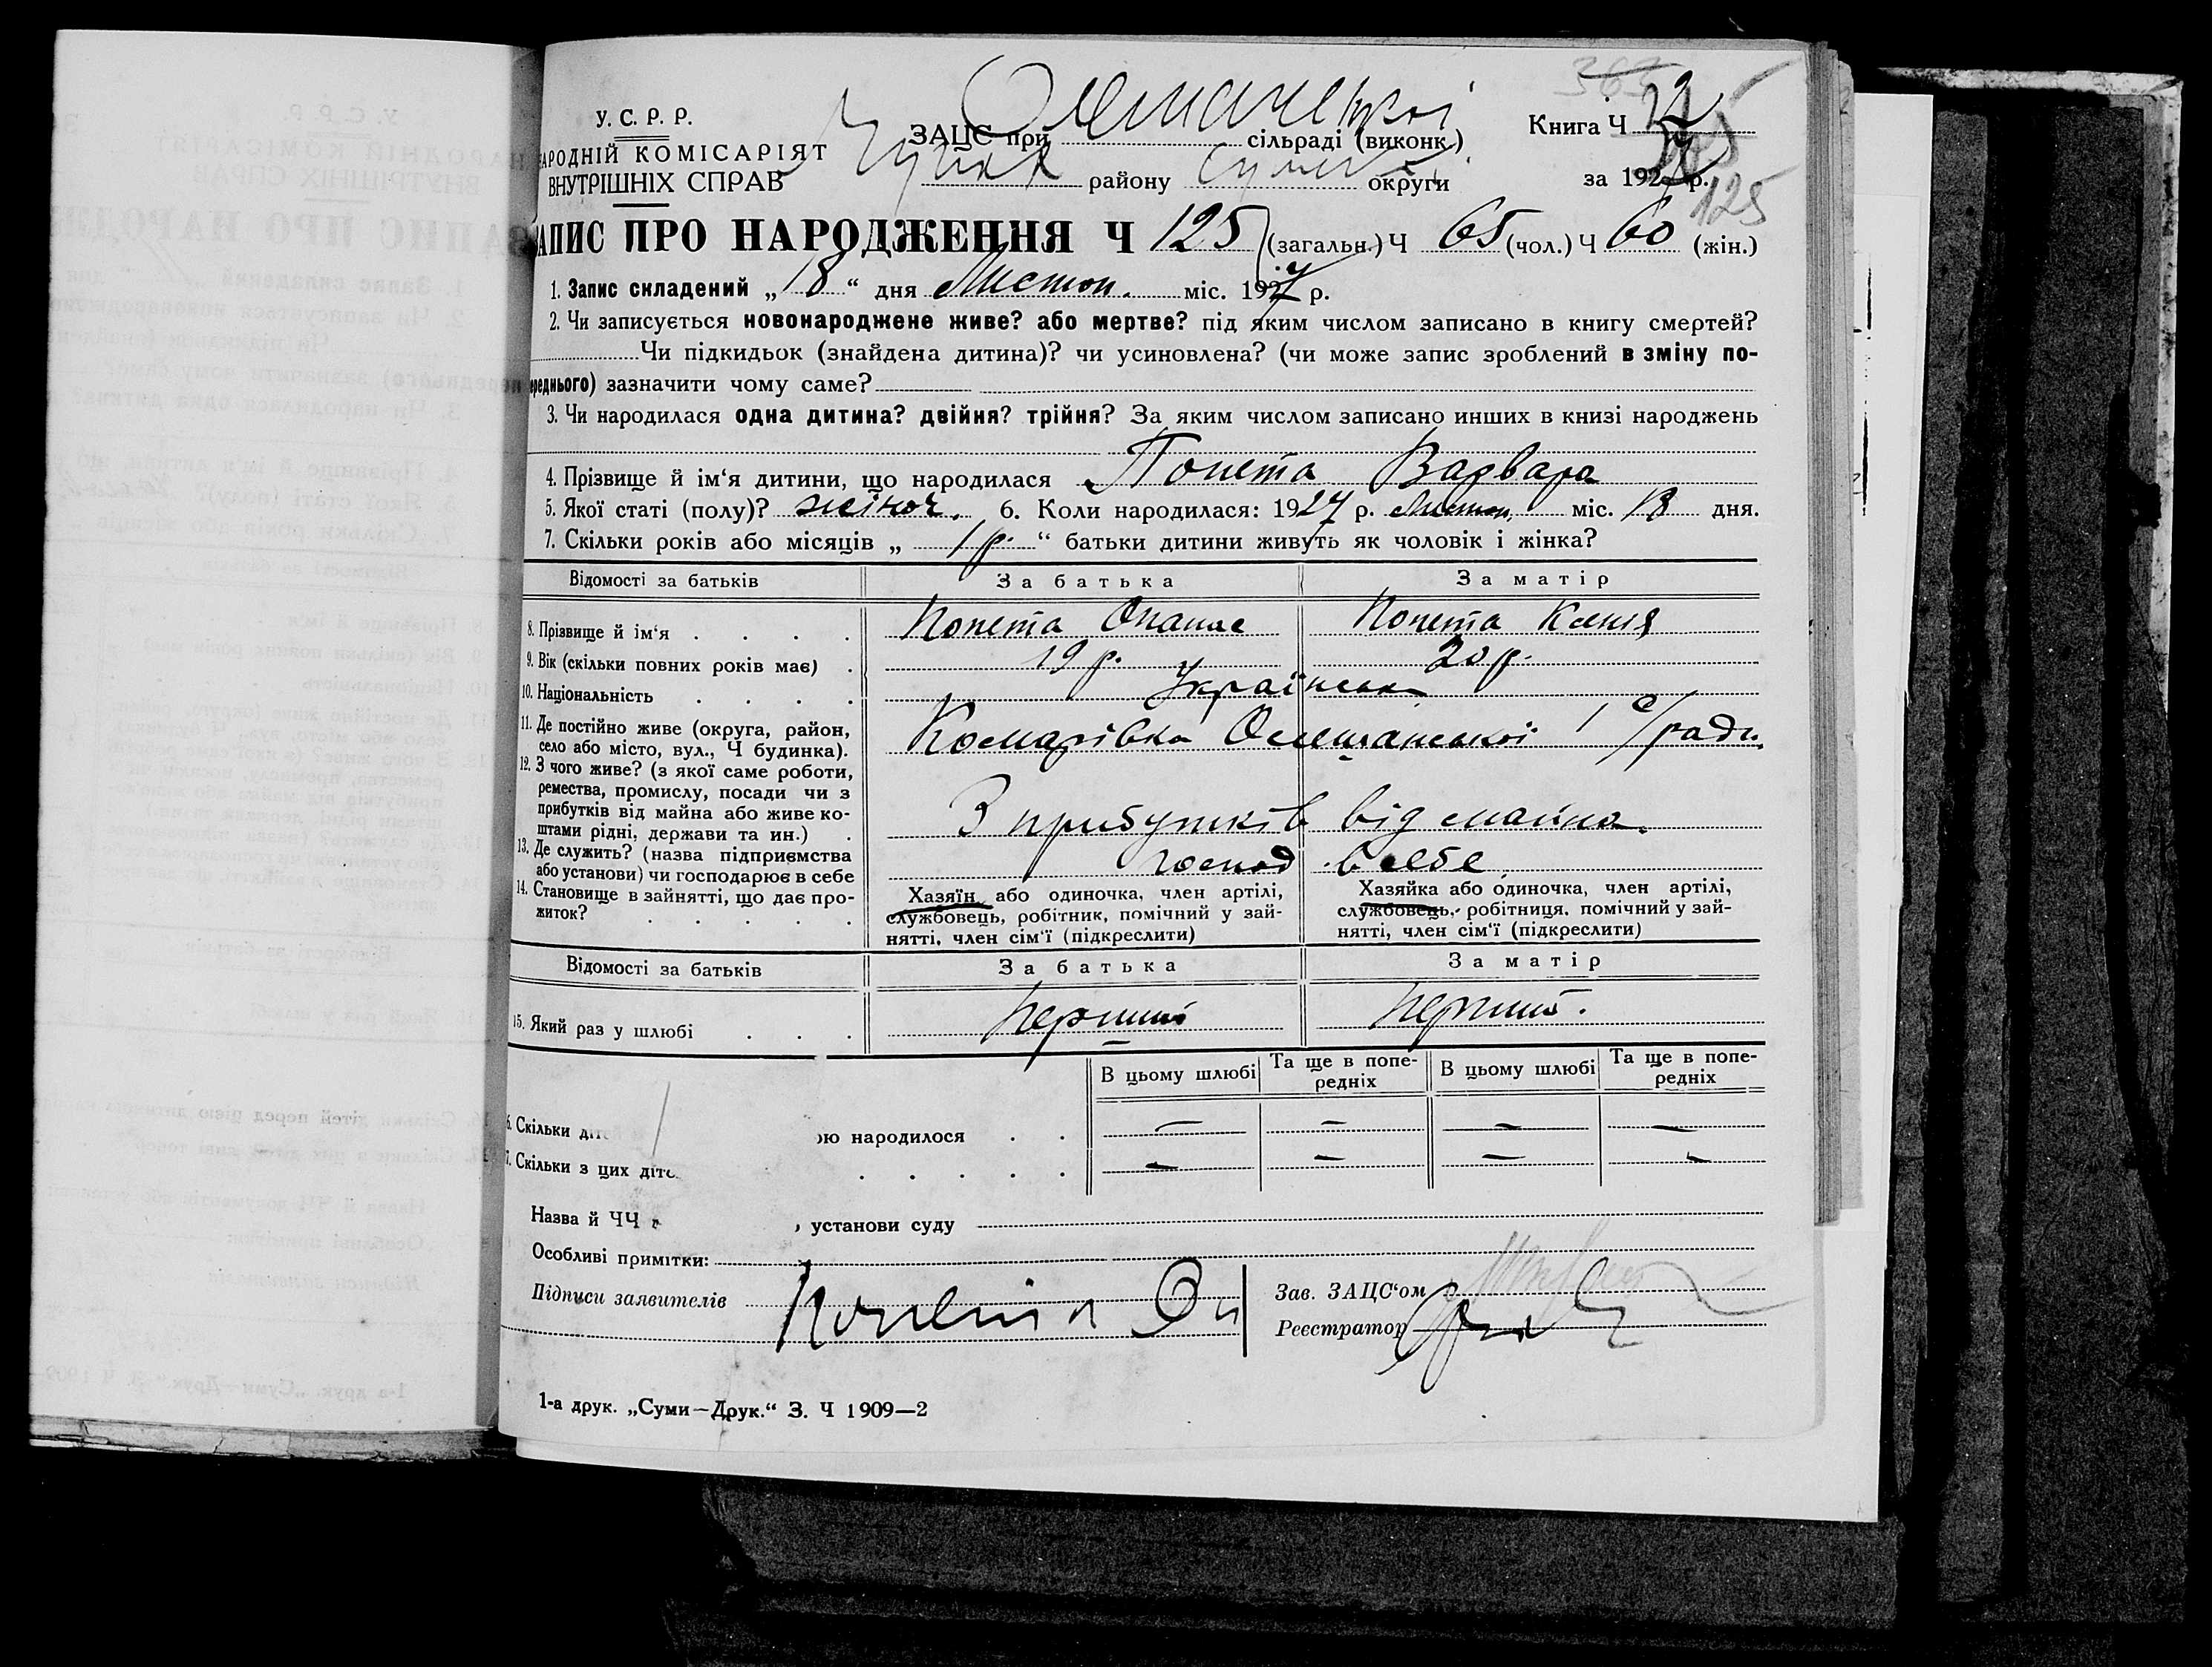 У. С. Р. Р.
НАРОДНІЙ КОМІСАРІЯТ
ВНУТРІШНІХ СПРАВ
ЗАЦС при сільраді (виконк.)
району округи
Книга Ч
за 1927 р.
125
ЗАПИС ПРО НАРОДЖЕННЯ Ч 125 (загальн.) Ч 65 (чол.) Ч 60 (жін.)
1. Запис складений „ 18 “ дня Листоп. міс. 1927 р.
2. Чи записується новонароджене живе? або мертве? під яким числом записано в книгу смертей?
Чи підкидьок (знайдена дитина)? чи усиновлена? (чи може запис зроблений в зміну по-
переднього) зазначити чому саме?
3. Чи народилася одна дитина? двійня? трійня? За яким числом записано инших в книзі народжень
4. Прізвище й ім‘я дитини, що народилася Попета Варвара
5. Якої статі (полу)? жіноч. 6. Коли народилася: 1927 р. Листоп. міс. 18 дня.
7. Скільки років або місяців „ 1 р. “ батьки дитини живуть як чоловік і жінка?
Відомості за батьків За батька За матір
8. Прізвище й ім‘я . . . . Попета Опанас Попета Ксенія
9. Вік (скільки повних років має) . 19 р. 20 р.
10. Національність . . . . Українська
11. Де постійно живе (округа, район,
село або місто, вул., Ч будинка). Комарівка с/ради
12. З чого живе? (з якої саме роботи,
ремества, промислу, посади чи з
прибутків від майна або живе ко-
штами рідні, держави та ин.) . З прибутків від майна.
13. Де служить? (назва підприємства
або установи) чи господарює в себе господ в себе
14. Становище в зайнятті, що дає про-
житок? . . . .
Хазяїн або одиночка, член артілі,
службовець, робітник, помічний у зай-
нятті, член сім‘ї (підкреслити)
Хазяйка або одиночка, член артілі,
службовець, робітниця, помічний у зай-
нятті, член сім‘ї (підкреслити)
Відомості за батьків За батька За матір
15. Який раз у шлюбі . . . Перший Перший.
В цьому шлюбі Та ще в попе-
редніх В цьому шлюбі Та ще в попе-
редніх
6. Скільки діте ою народилося . . — — — —
7. Скільки з цих діте . . . . . — — — —
Назва й ЧЧ установи суду
Особливі примітки:
Підписи заявителів Попета Оп
Зав. ЗАЦС‘ом
Реєстратор
1-а друк. „Суми—Друк.“ З. Ч 1909—2